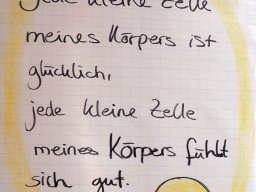 jede kleine Zelle
meines Körpers ist
glücklich,
jede kleine Zelle
meines Körpers fühlt
sich gut.